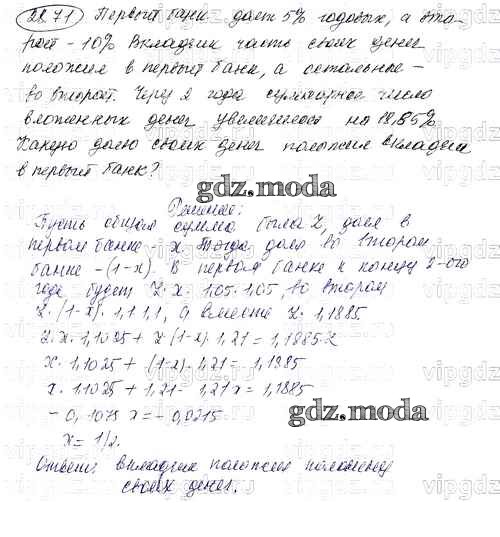 22.71 Первый банк дает 5% годовых, а вто-
рой - 10% Вкладчик часть своих денег
положил в первый банк, а остальные -
во второй. Через 2 года суммарное число
вложенных денег увеличилось на 18,85%
Какую долю своих денег положил вкладчик
в первый банк?
gdz.moda
Решение:
Пусть общая сумма была Z, доля в
первом банке - x. Тогда доля во втором
банке - (1-x). В первом банке к концу 2-ого
года будет Z·x·1,05·1,05, во втором
Z·(1-x)·1,1·1,1, а вместе Z·1,1885
Z·x·1,1025 + Z·(1-x)·1,21 = 1,1885·Z
x·1,1025 + (1-x)·1,21 = 1,1885
x·1,1025 + 1,21 - 1,21x = 1,1885
-0,1075 x = -0,0215
gdz.moda
x = 1/2.
Ответ: вкладчик положил половину
своих денег.